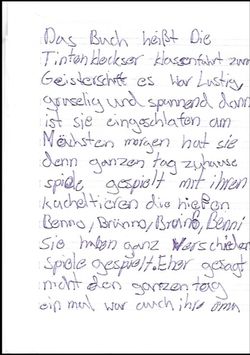 Das Buch heißt Die
Tintenkleckser klassenfahrt zum
Geisterschiff es war Lustig,
gruselig und spannend dann
ist sie eingeschlafen am
Nächsten morgen hat sie
denn ganzen tag zuhause
spiele gespielt mit ihren
kucheltieren die hießen
Benno, Brunno, Bruno, Benni
Sie haben ganz verschieden
spiele gespielt. Eher gesagt
nicht den ganzen tag
ein mal war auch ihre oma